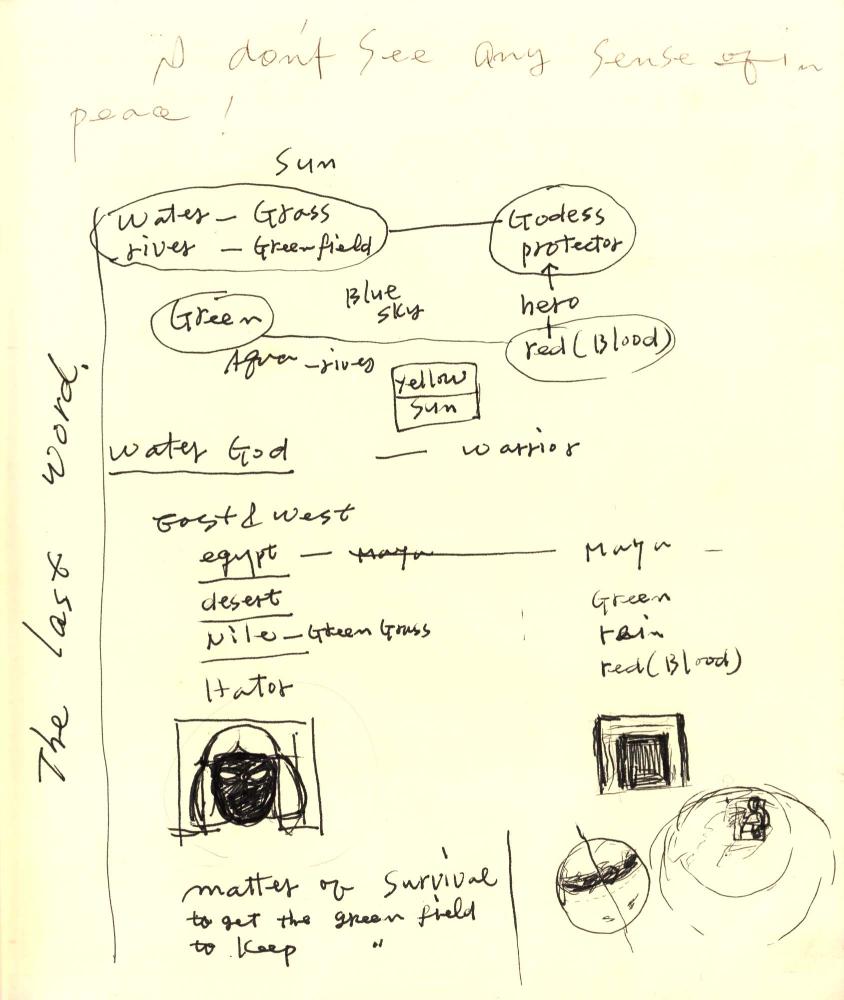 I don't see any sense of in
peace!
Sun
Water - Grass
rives - Greenfield
Godess
protector
Blue
sky
hero
Green
red (Blood)
Aqua - rives
yellow
sun
Water God — Warrior
East & West
egypt — Maya — Maya —
desert
Green
Nile - Green Grass
rain
red (Blood)
Hator
The last word.
matter of Survival
to get the green field
to keep "